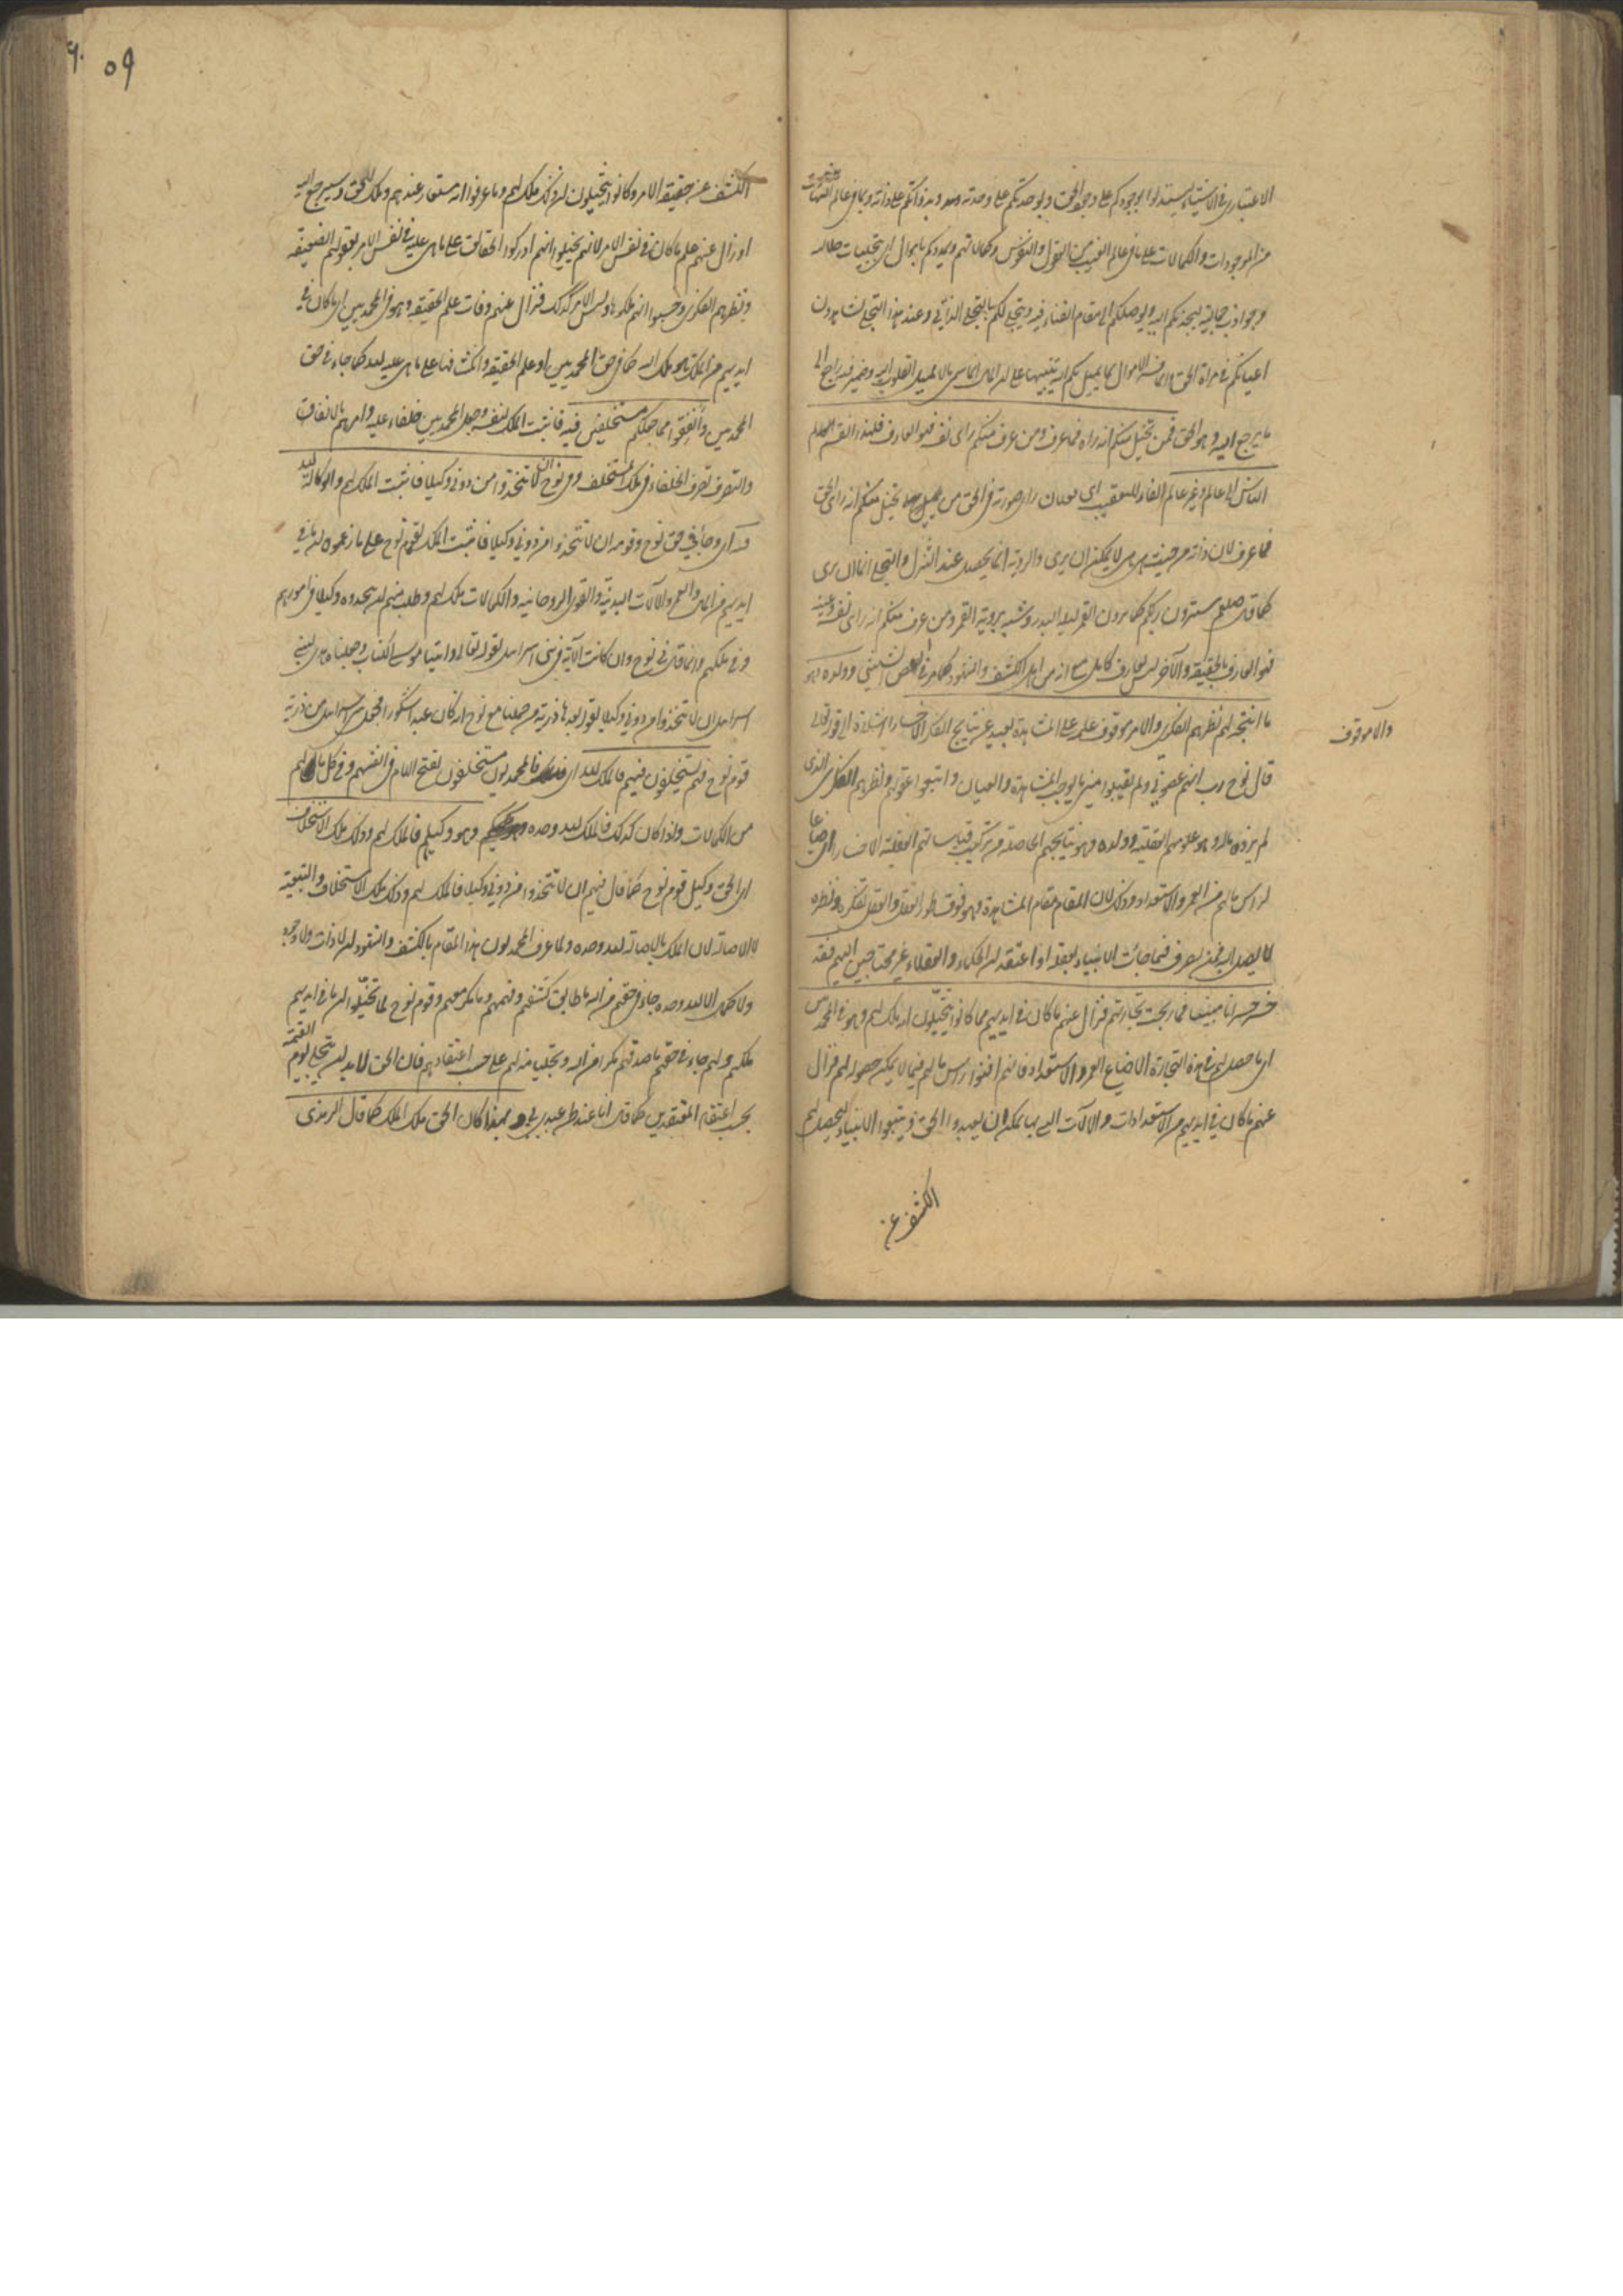 الاعتبار فى الاشياء ليستدلوا بوجودكم على وجود الحق وبوحدتكم على وحدته وبذواتكم على ذاته وبما فى عالم الشهادة
من الموجودات والكمالات على ما فى عالم الغيب من العقول والنفوس وكمالاتهم ويمددكم باموال اى بتجليات
وجواذب جمالية ليجذبكم اليه ويوصلكم الى مقام الفناء فيه ويتجلى لكم بالتجلى الذاتى وعند هذا التجلى تشاهدون
اعيانكم فى مرآة الحق الاموال بما يميل بكم اليه تنبيها على ان المال انما سمى مالا لميل القلوب اليه وضمير فيه راجع الى
ما يرجع اليه وهو الحق فمن تخيل منكم انه رآه فما عرف ومن عرف منكم انه رأى نفسه فهو العارف فلهذا انقسم
الناس الى عالم وغير عالم الفاء للتعقيب اى صورته فى الحق من تخيل منكم انه رأى الحق
فما عرف لان ذاته من حيث هى هى لا يمكن ان يرى والرؤية انما يحصل عند التنزل والتجلى
كما قال صلعم سترون ربكم كما ترون القمر ليلة البدر وشبه برؤية القمر ومن عرف منكم انه رأى نفسه وعينه
فهو العارف بالحقيقة والآخر ليس بعارف كامل مع انه من اهل الكشف والشهود كما مر فى الفص الشيثى وولده وهو
ما انتجه لهم نظرهم الفكرى والامر موقوف علمه على المشاهدة بعيد عن نتايج الفكر الا خسارا اشارة الى قوله تعالى
والامر موقوف
قال نوح رب انهم عصونى ولم يقبلوا منى ما يوجب المشاهدة والعيان واتبعوا عقولهم ونظرهم الفكرى الذى
لم يزده ماله وهو علومهم العقلية وولده وهو نتايجهم الحاصلة من تركيب قياساتهم العقلية الا خسارا اى ضياعا
لرأس مالهم من العمر والاستعداد وذلك لان المقام مقام المشاهدة وهو فوق طور العقل والعقل بفكره ونظره
لا يصل اليه فمن تصرف فيما جائت الانبياء بعقله او اعتقد ان الحكماء والعقلاء غير محتاجين اليهم فقد
خسر خسرانا مبينا فما ربحت تجارتهم فزال عنهم ما كان فى ايديهم مما كانوا يتخيلون انه ملك لهم وهو فى المحمديين
اى ما حصل لهم فى هذه التجارة الا ضياع العمر والاستعداد فانهم افنوا رأس مالهم فيما لا يمكن حصوله لهم فزال
عنهم ما كان فى ايديهم من الاستعدادات والآلات التى بها يمكن ان يعبدوا الحق ويتبعوا الانبياء ليحصل لهم
الكشف عن
٥٩
الكشف عن حقيقة الامر وكانوا يتخيلون ان ذلك ملك لهم وما عرفوا انه مستعار عندهم وملك للحق وسيرجع اليه
او زال عنهم علم ما كان فى نفس الامر لانهم تخيلوا انهم ادركوا الحقائق على ما هى عليه فى نفس الامر بعقولهم الضعيفة
ونظرهم الفكرى وحسبوا انهم ملكوها وليس الامر كذلك فزال عنهم وفات علم الحقيقة وهو فى المحمديين اى ما كان فى
ايديهم من الملك هو ملك لله كما فى حق المحمديين او علم الحقيقة وانكشافها على ما هى عليه لله كما جاء فى حق
المحمديين وانفقوا مما جعلكم مستخلفين فيه فاثبت الملك لنفسه وجعل المحمديين خلفاء عليه وامرهم بالانفاق
والتصرف تصرف الخلفاء فى ملك المستخلف وفى نوح ان لا تتخذوا من دونى وكيلا فاثبت الملك لهم والوكالة لله
فيه اى وجاء فى حق نوح وقومه ان لا تتخذوا من دونى وكيلا فاثبت الملك لقوم نوح على ما زعموا ان ما فى
ايديهم من المال والعمر والآلات البدنية والقوى الروحانية والكمالات ملك لهم وطلب منهم ان يتخذوه وكيلا فى امورهم
وفى ملكهم وانما قال فى نوح وان كانت الآية فى بنى اسرائيل لقوله تعالى وآتينا موسى الكتاب وجعلناه هدى لبنى
اسرائيل ان لا تتخذوا من دونى وكيلا لقوله بعدها ذرية من حملنا مع نوح انه كان عبدا شكورا فجعل بنى اسرائيل من ذرية
قوم نوح فهم مستخلفون فيهم فالملك لله اى فالمحمديون مستخلفون بفتح اللام فى انفسهم وفى كل ما لهم
من الكمالات واذا كان كذلك فالملك لله وحده وهو وكيلهم فالملك لهم وذلك ملك الاستخلاف
اى الحق وكيل قوم نوح كما قال فيهم ان لا تتخذوا من دونى وكيلا فالملك لهم وذلك ملك الاستخلاف والتبعية
لا الاصالة لان الملك بالاصالة لله وحده ولما عرف المحمديون هذا المقام بالكشف والشهود ان لا ذات ولا وجود
ولا كمال الا لله وحده جاء فى حقهم من الله ما طابق كشفهم وفهمهم وما مكر معهم وقوم نوح لما تخيلوا ان ما فى ايديهم
ملكهم ولهم جاء فى حقهم ما صدقهم مكرا من الله وتجليا منه لهم على حسب اعتقادهم فان الحق لابد ان يتجلى يوم القيمة
بحسب اعتقاد المعتقدين كما قال انا عند ظن عبدى بى وبهذا كان الحق ملك الملك كما قال الترمذى